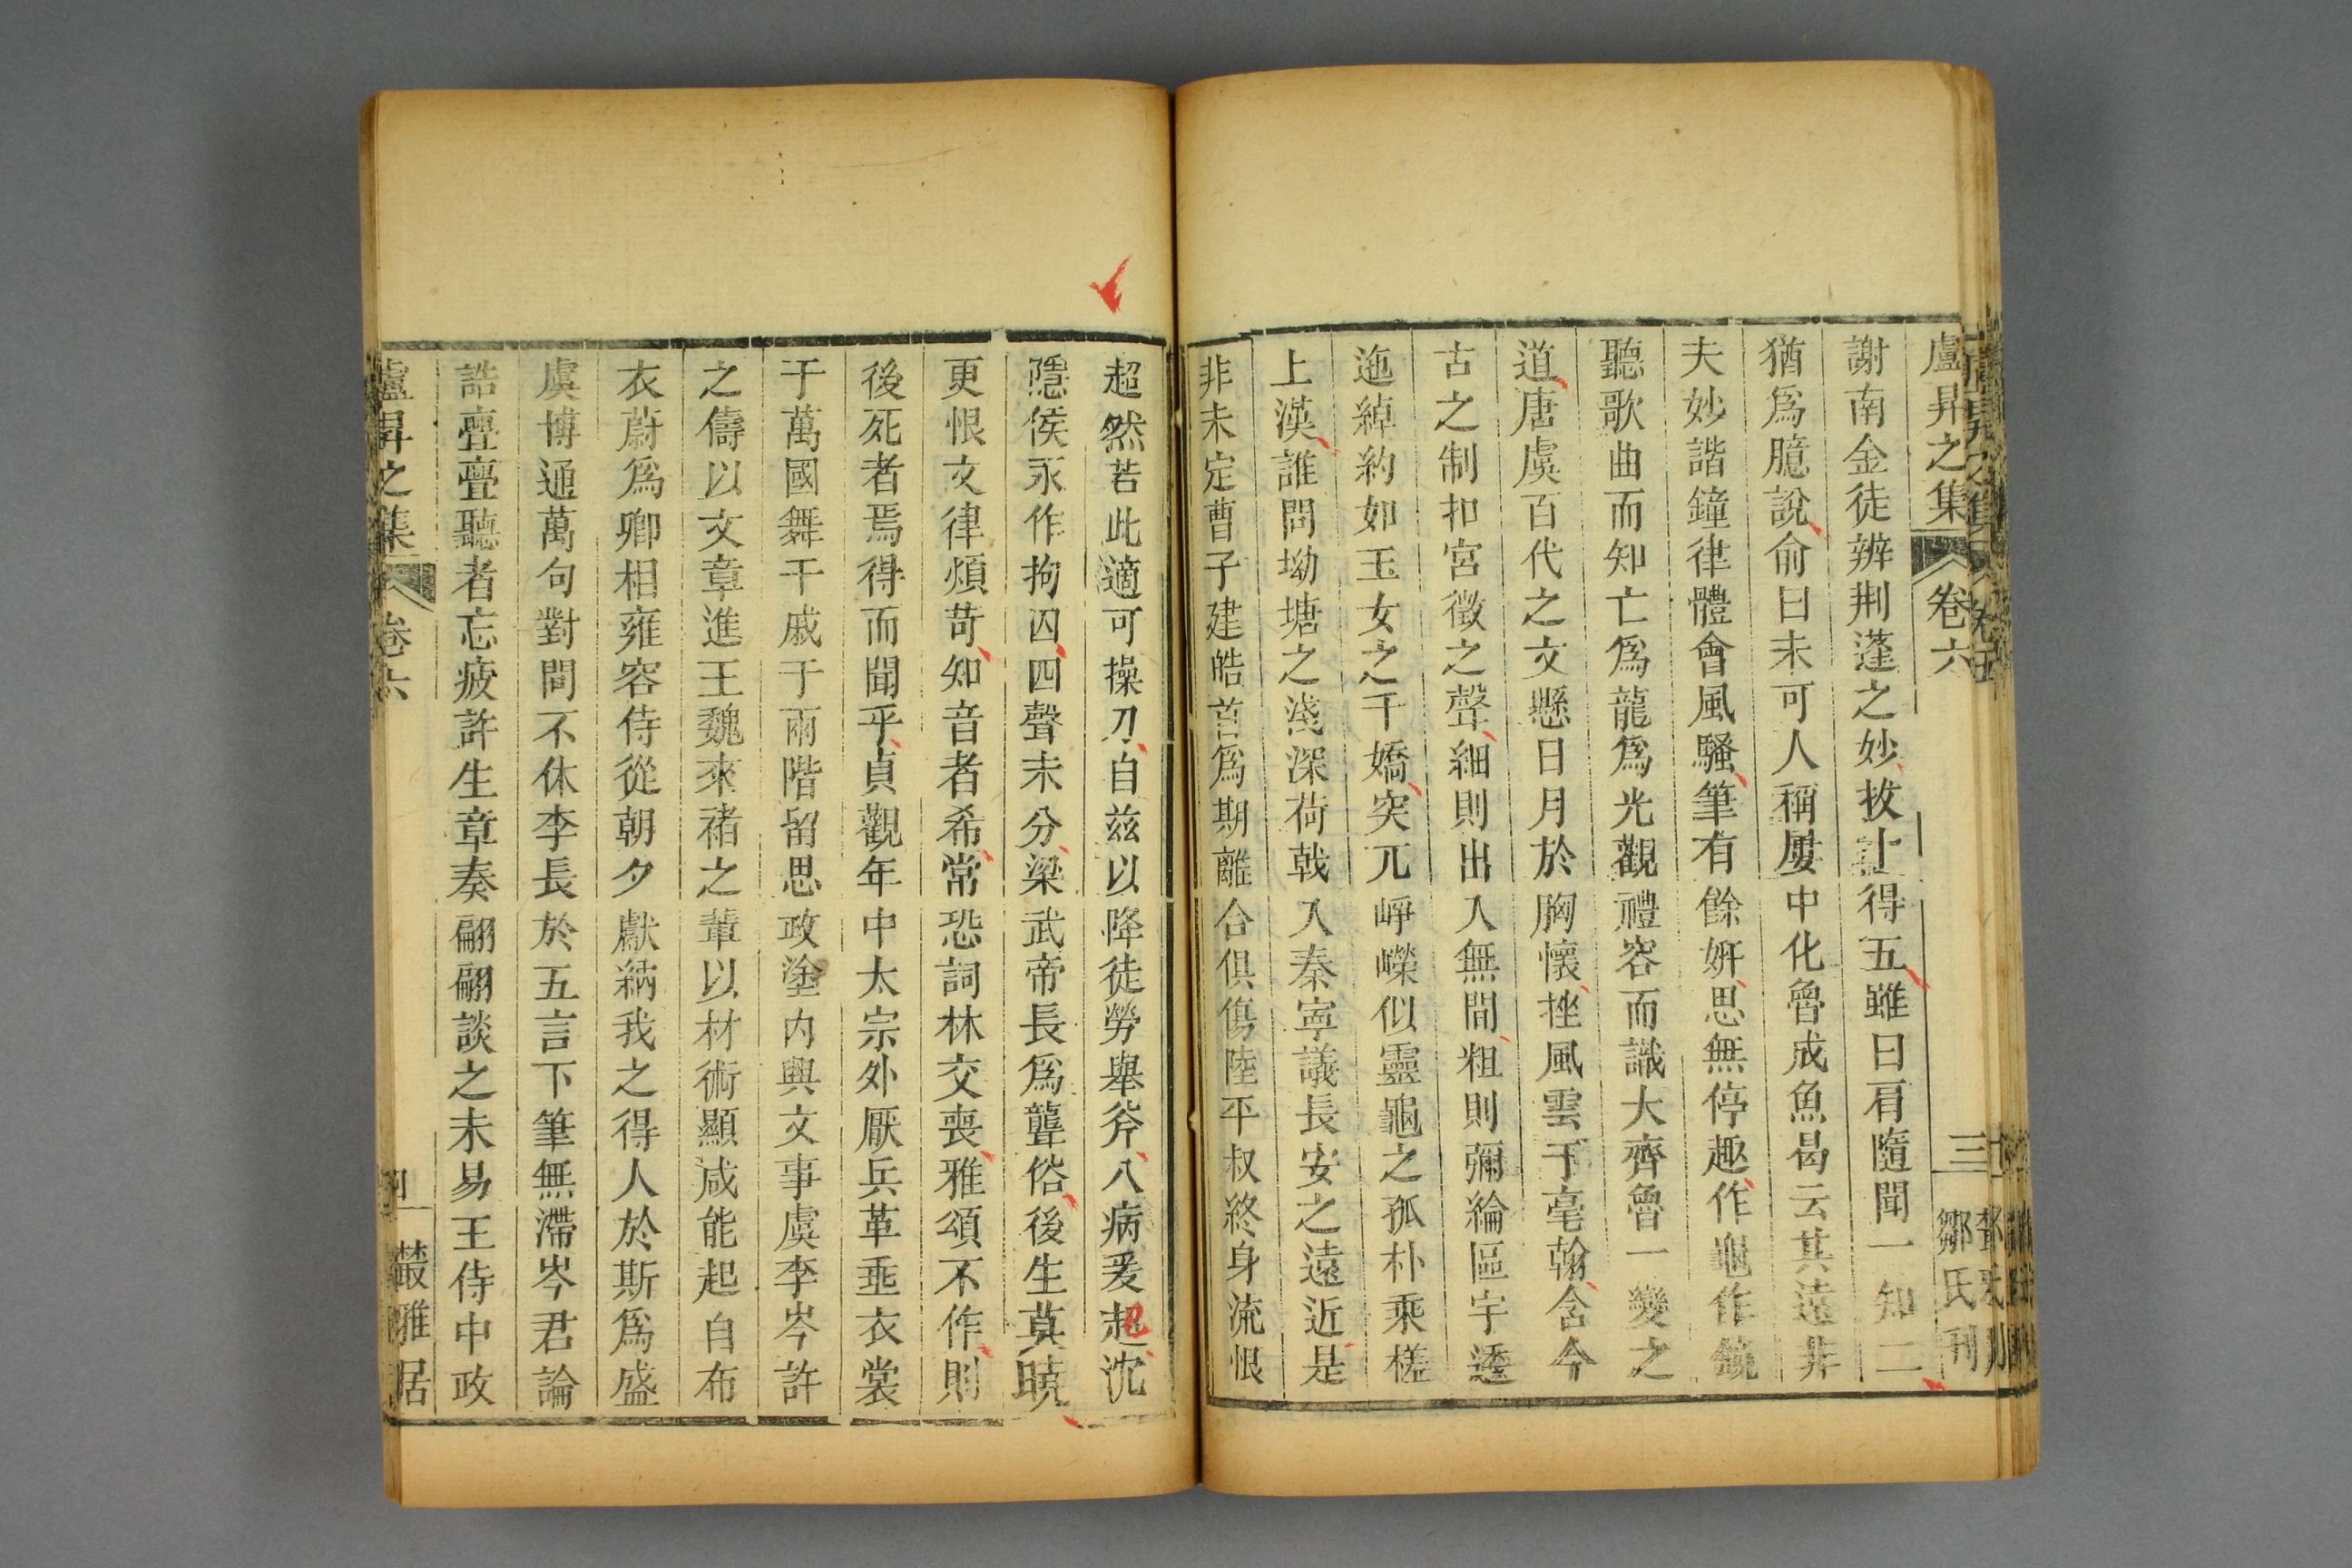 盧昇之集 卷六 三 鄒氏刊
謝南金徒辨荆蓬之妙拔十得五雖曰肩隨聞一知二
猶爲臆說俞曰未可人稱屢中化魯成魚曷云其遠井
夫妙諧鐘律體會風騷筆有餘妍思無停趣作龜作鏡
聽歌曲而知亡爲龍爲光觀禮容而識大齊魯一變之
道唐虞百代之文懸日月於胸懷挫風雲于毫翰含今
古之制扣宮徵之聲細則出入無間粗則彌綸區宇透
迤綽約如玉女之千嬌突兀崢嶸似靈龜之孤朴乘槎
上漢誰問坳塘之淺深荷戟入秦寧議長安之遠近是
非未定曹子建皓首爲期離合俱傷陸平叔終身流恨
超然若此適可操刀自兹以降徒勞舉斧八病爰起沈
隱侯永作拘囚四聲未分梁武帝長爲聾俗後生莫曉
更恨文律煩苛知音者希常恐詞林交喪雅頌不作則
後死者焉得而聞乎貞觀年中太宗外厭兵革垂衣裳
于萬國舞干戚于兩階留思政塗内興文事虞李岑許
之儔以文章進王魏來褚之輩以材術顯咸能起自布
衣蔚爲卿相雍容侍從朝夕獻納我之得人於斯爲盛
虞博通萬句對問不休李長於五言下筆無滯岑君論
誥亹亹聽者忘疲許生章奏翩翩談之未易王侍中政
盧昇之集 卷六 叢雅居